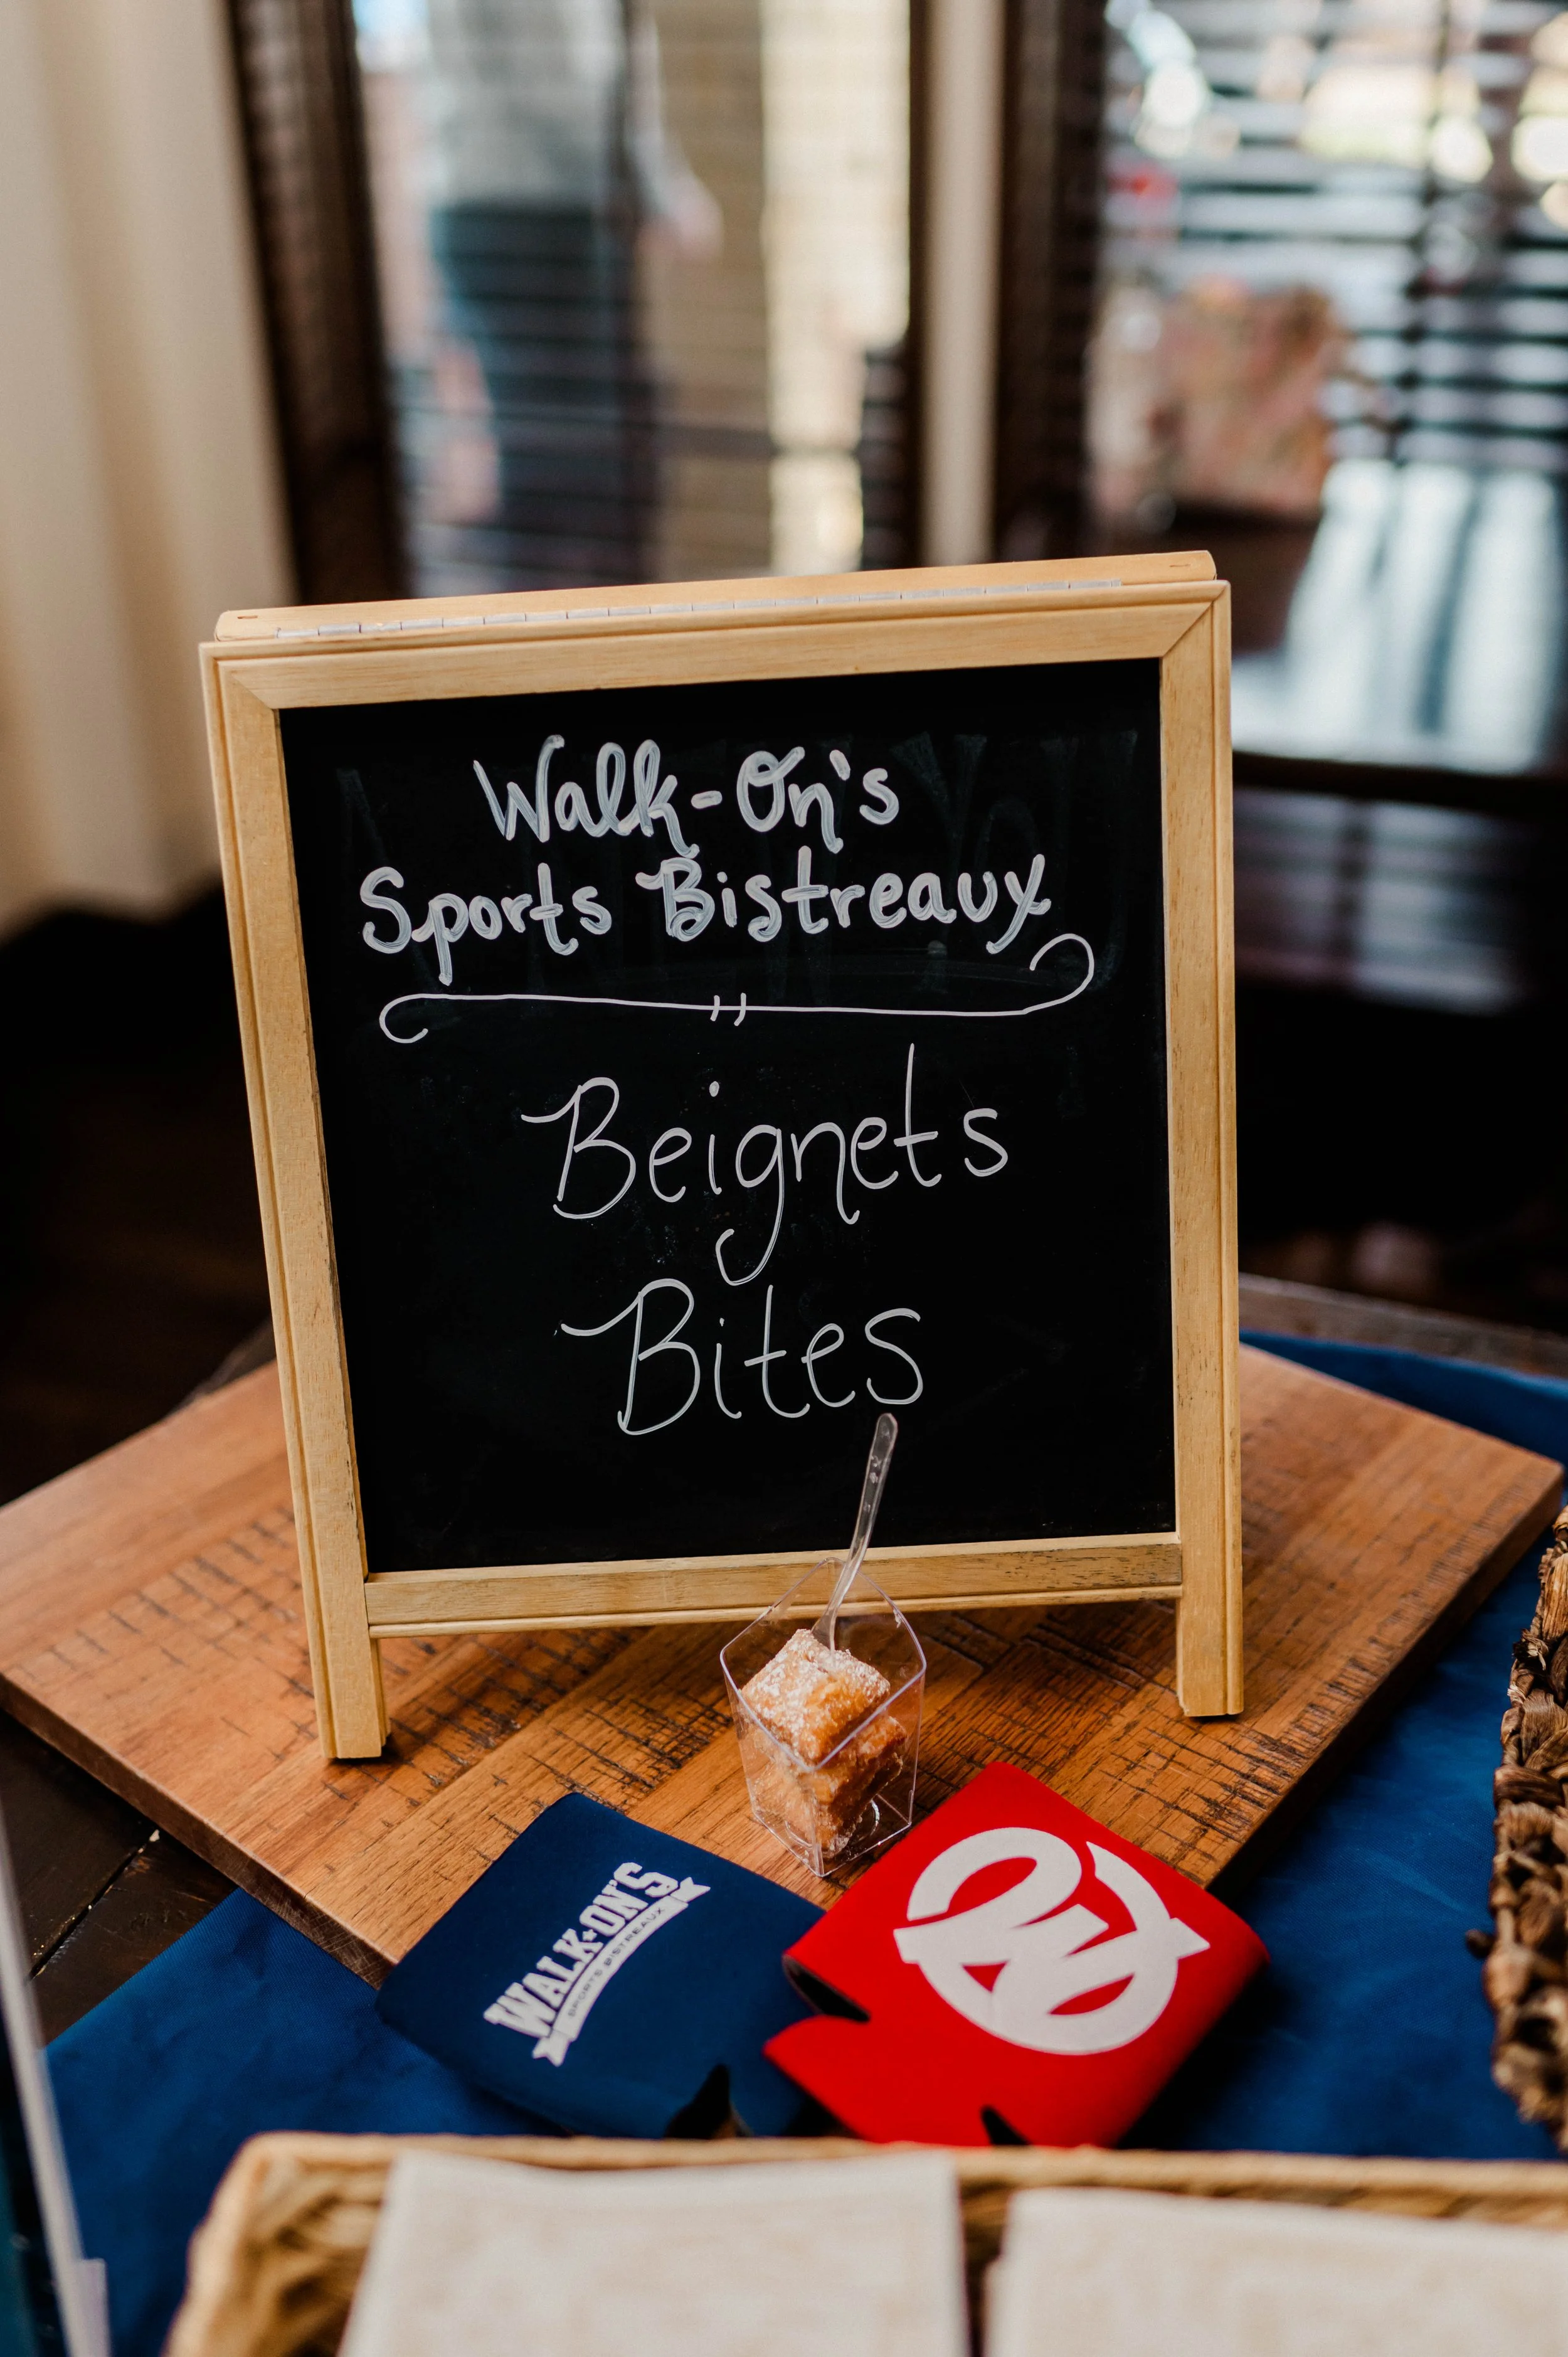 Walk-On's
Sports Bistreaux
Beignets
Bites
WALK-ON'S
SPORTS BISTREAUX